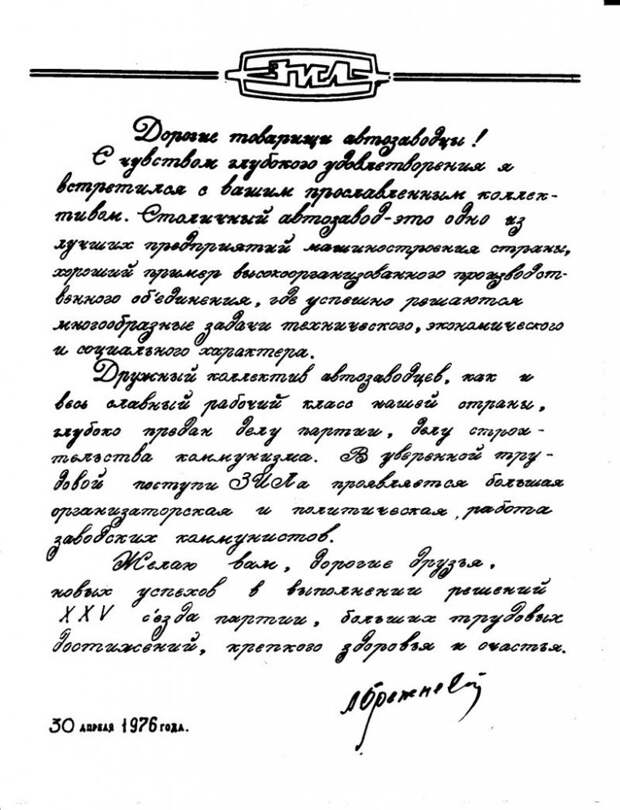 ЗИЛ
Дорогие товарищи автозаводцы!
С чувством глубокого удовлетворения я
встретился с вашим прославленным коллек-
тивом. Столичный автозавод-это одно из
лучших предприятий машиностроения страны,
хороший пример высокоорганизованного производст-
венного объединения, где успешно решаются
многообразные задачи технического, экономического
и социального характера.
Дружный коллектив автозаводцев, как и
весь славный рабочий класс нашей страны,
глубоко предан делу партии, делу строи-
тельства коммунизма. В уверенной тру-
довой поступи ЗИЛа проявляется большая
организаторская и политическая работа
заводских коммунистов.
Желаю вам, дорогие друзья,
новых успехов в выполнении решений
XXV съезда партии, больших трудовых
достижений, крепкого здоровья и счастья.
Л Брежнев
30 апреля 1976 года.